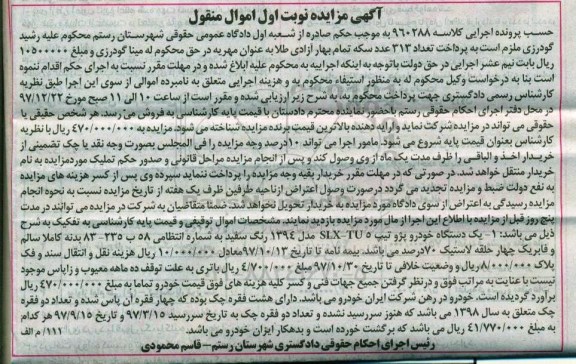 آگهی مزایده نوبت اول اموال منقول
حسب پرونده اجرایی کلاسه ۹۶۰۲۸۸ به موجب حکم صادره از شعبه اول دادگاه عمومی حقوقی شهرستان رستم محکوم علیه رشید
گودرزی ملزم است به پرداخت تعداد ۳۱۳ عدد سکه تمام بهار آزادی طلا به عنوان مهریه در حق محکوم له مینا گودرزی و مبلغ ۱۰۵۰۰۰۰۰
ریال بابت نیم عشر اجرایی در حق دولت باتوجه به اینکه اجراییه به محکوم علیه ابلاغ شده و در مهلت مقرر نسبت به اجرای حکم اقدام ننموده
است بنا به درخواست وکیل محکوم له به منظور استیفاء محکوم به و هزینه اجرایی متعلق به نامبرده اموالی از سوی این اجرا طبق نظریه
کارشناس رسمی دادگستری جهت پرداخت محکوم به، به شرح زیر ارزیابی شده و مقرر است از ساعت ۱۰ الی ۱۱ صبح مورخ ۹۷/۱۲/۲۲
در محل دفتر اجرای احکام حقوقی رستم باحضور نماینده محترم دادستان با قیمت پایه کارشناسی به فروش می رسد. هر شخص حقیقی یا
حقوقی می تواند در مزایده شرکت نماید و ارایه دهنده بالاترین قیمت برنده مزایده شناخته می شود. مزایده به ۴۷۰/۰۰۰/۰۰۰ ریال با نظریه
کارشناس بعنوان قیمت پایه شروع می شود. مامور اجرا می تواند ۱۰درصد وجه مزایده را فی المجلس بصورت وجه نقد یا چک تضمینی از
خریدار اخذ و الباقی را ظرف مدت یک ماه از وی وصول کند و پس از انجام مزایده مراحل قانونی و صدور حکم تملیک موردمزایده به نام
خریدار منتقل خواهد شد. در صورتی که در مهلت مقرر خریدار بقیه وجه مزایده را پرداخت ننماید سپرده وی پس از کسر هزینه های مزایده
به نفع دولت ضبط و مزایده تجدید می گردد درصورت وصول اعتراض ازناحیه طرفین ظرف یک هفته از تاریخ مزایده نسبت به نحوه انجام
مزایده رسیدگی به اعتراض از سوی دادگاه مورد مزایده به خریدار تحویل نخواهد شد. ضمنا متقاضیان به شرکت در مزایده می توانند در مدت
پنج روز قبل از مزایده با اطلاع این اجرا از مال مورد مزایده بازدید نمایند. مشخصات اموال توقیفی و قیمت پایه کارشناسی به تفکیک به شرح
ذیل می باشد: ۱- یک دستگاه خودرو پژو تیپ SLX-TU۵ مدل ۱۳۹۴ رنگ سفید به شماره انتظامی ۵۸ ب ۲۳۵-۸۳ بدنه کاملا سالم
و فابریک چهار حلقه لاستیک ۷۰درصد می باشد. بیمه نامه تا تاریخ ۹۷/۱۰/۱۳ معادل ۱۰/۰۰۰/۰۰۰ ریال هزینه نقل و انتقال سند و فک
پلاک ۸/۰۰۰/۰۰۰ریال و وضعیت خلافی تا تاریخ ۹۷/۱۰/۳۰ مبلغ ۴/۷۰۰/۰۰۰ ریال باتری به علت توقف ده ماهه معیوب و زاپاس موجود
نیست با عنایت به مراتب فوق و درنظر گرفتن جمیع جهات فنی و کسر کلیه هزینه های فوق قیمت خودرو تماما به مبلغ ۴۷۰/۰۰۰/۰۰۰ ریال
برآورد گردیده است. خودرو در رهن شرکت ایران خودرو می باشد. دارای هشت فقره چک بوده که چهار فقره آن پاس شده و تعداد دو فقره
چک متعلق به سال ۱۳۹۸ می باشد که هنوز سررسید نشده و تعداد دو فقره چک به تاریخ سررسید ۹۷/۳/۱۵ و تاریخ ۹۷/۹/۱۵ هر کدام
به مبلغ ۴۱/۷۷۰/۰۰۰ ریال می باشد که برگشت خورده است و بدهکار ایران خودرو می باشد. ۱۱۱/ م الف
رئیس اجرای احکام حقوقی دادگستری شهرستان رستم – قاسم محمودی